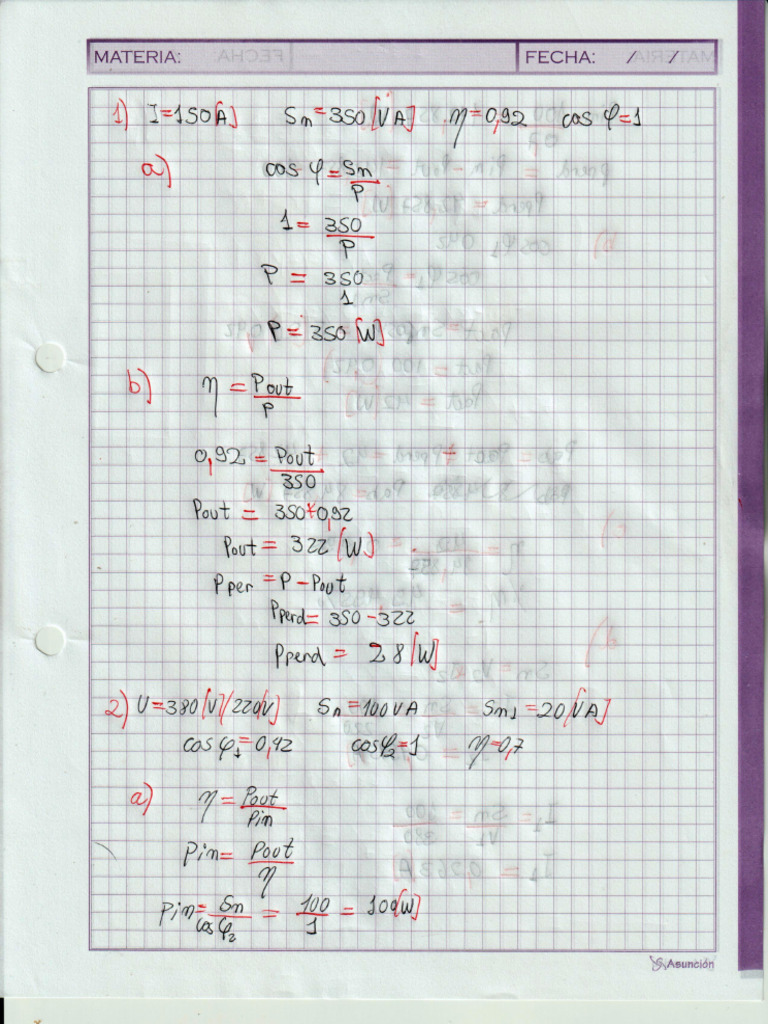 MATERIA: FECHA: / /
1) I=150[A] Sn=350[VA] η=0,92 cos φ=1
a) cos φ=Sn/P
1=350/P
P=350/1
P=350[W]
b) η=Pout/P
0,92=Pout/350
Pout=350*0,92
Pout=322[W]
Pper=P-Pout
Pperd=350-322
Pperd=28[W]
2) U=380[V](220[V] Sn=100VA Sm1=20[VA]
cosφ1=0,42 cosφ2=1 η=0,7
a) η=Pout/Pin
Pin=Pout/η
Pin=Sn/cosφ2=100/1=100[W]
Asunción